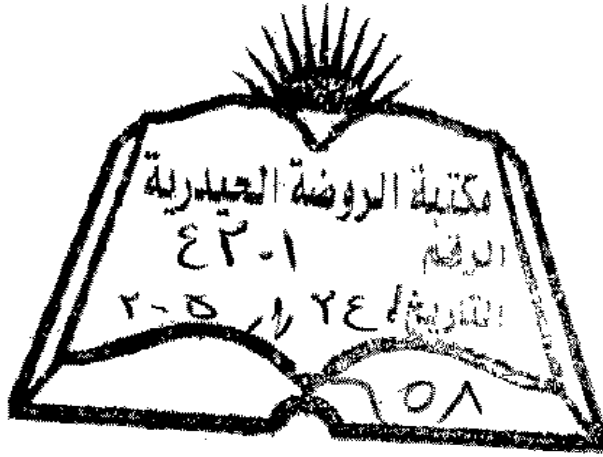 مكتبة الروضة الحيدرية
الرقم ٤٣٠١
التاريخ ٢٤
٥٨